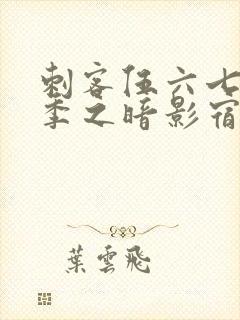 刺客伍六七
季之暗影宿
葉雲飛